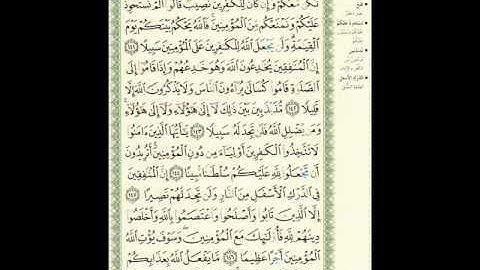 نَكُن مَّعَكُمْ وَإِن كَانَ لِلْكَٰفِرِينَ نَصِيبٌ قَالُوٓا۟ أَلَمْ نَسْتَحْوِذْ
عَلَيْكُمْ وَنَمْنَعْكُم مِّنَ ٱلْمُؤْمِنِينَ ۚ فَٱللَّهُ يَحْكُمُ بَيْنَكُمْ يَوْمَ
ٱلْقِيَٰمَةِ ۗ وَلَن يَجْعَلَ ٱللَّهُ لِلْكَٰفِرِينَ عَلَى ٱلْمُؤْمِنِينَ سَبِيلًا ١٤١
إِنَّ ٱلْمُنَٰفِقِينَ يُخَٰدِعُونَ ٱللَّهَ وَهُوَ خَٰدِعُهُمْ وَإِذَا قَامُوٓا۟ إِلَى
ٱلصَّلَوٰةِ قَامُوا۟ كُسَالَىٰ يُرَآءُونَ ٱلنَّاسَ وَلَا يَذْكُرُونَ ٱللَّهَ إِلَّا
قَلِيلًا ١٤٢ مُّذَبْذَبِينَ بَيْنَ ذَٰلِكَ لَآ إِلَىٰ هَٰٓؤُلَآءِ وَلَآ إِلَىٰ هَٰٓؤُلَآءِ ۚ
وَمَن يُضْلِلِ ٱللَّهُ فَلَن تَجِدَ لَهُۥ سَبِيلًا ١٤٣ يَٰٓأَيُّهَا ٱلَّذِينَ ءَامَنُوا۟
لَا تَتَّخِذُوا۟ ٱلْكَٰفِرِينَ أَوْلِيَآءَ مِن دُونِ ٱلْمُؤْمِنِينَ ۚ أَتُرِيدُونَ
أَن تَجْعَلُوا۟ لِلَّهِ عَلَيْكُمْ سُلْطَٰنًا مُّبِينًا ١٤٤ إِنَّ ٱلْمُنَٰفِقِينَ
فِى ٱلدَّرْكِ ٱلْأَسْفَلِ مِنَ ٱلنَّارِ وَلَن تَجِدَ لَهُمْ نَصِيرًا ١٤٥
إِلَّا ٱلَّذِينَ تَابُوا۟ وَأَصْلَحُوا۟ وَٱعْتَصَمُوا۟ بِٱللَّهِ وَأَخْلَصُوا۟
دِينَهُمْ لِلَّهِ فَأُو۟لَٰٓئِكَ مَعَ ٱلْمُؤْمِنِينَ ۖ وَسَوْفَ يُؤْتِ ٱللَّهُ
ٱلْمُؤْمِنِينَ أَجْرًا عَظِيمًا ١٤٦ مَّا يَفْعَلُ ٱللَّهُ بِعَذَابِكُمْ